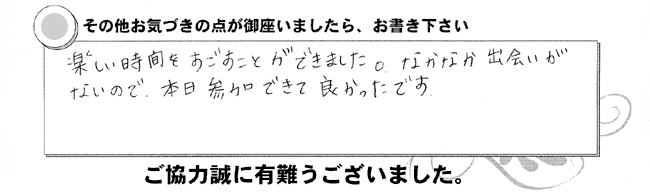 その他お気づきの点が御座いましたら、お書き下さい
楽しい時間をすごすことができました。なかなか出会いが
ないので、本日参加できて良かったです
ご協力誠に有難うございました。